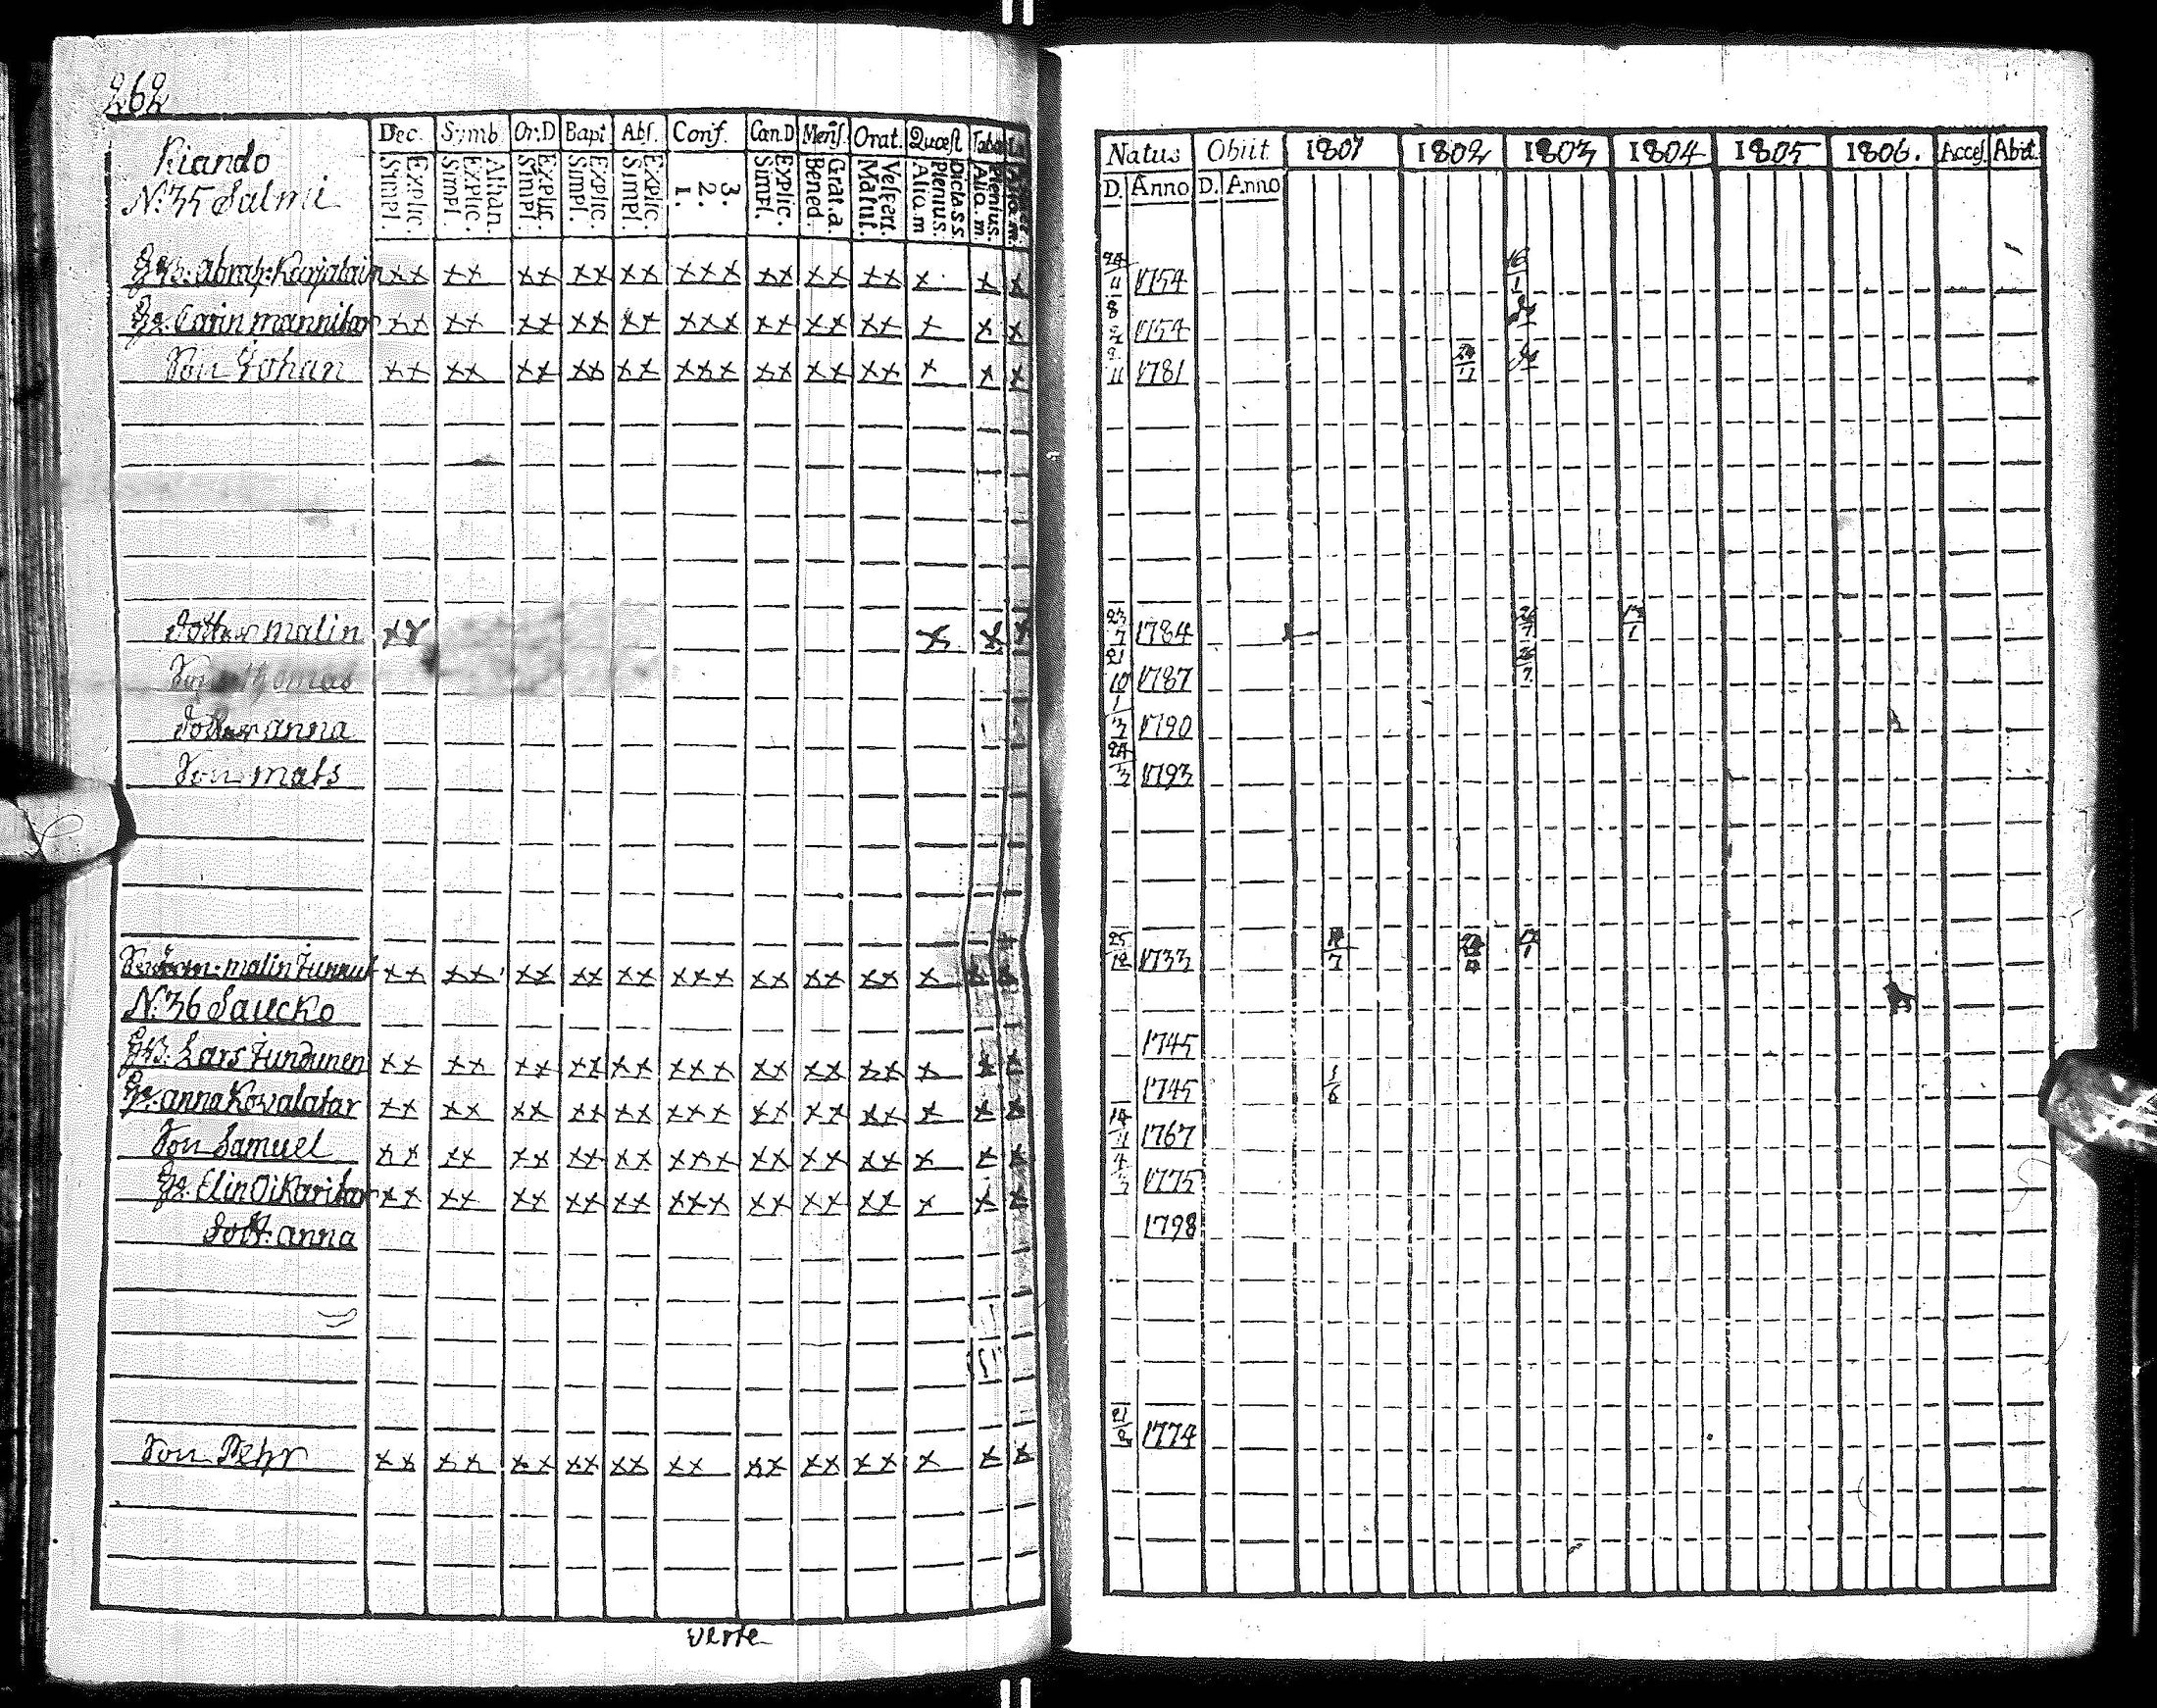 262
Riando
N:35 Salmi
Dec. Symb Or.D Bapt Abs. Conf. Can.D Mens. Orat. Quæst Taba
Explic. Simpl. Athan. Explic. Simpl. Explic. Simpl. Explic. Simpl. Explic. Simpl. 3. 2. 1. Explic. Simpl. Grat. a Bened. Vespert. Matut. Dicta S.S. Plenius. Aliq. m Plenius. Aliq. m
Natus Obiit 1801 1802 1803 1804 1805 1806. Acces. Abiit.
D. Anno D. Anno
Abrah: xx xx xx xx xx xxx xx xx xx x x x 24/11 1754 16/1
Carin Mannitar xx xx xx xx xx xxx xx xx xx x x x 8/2 1754
Son Johan xx xx xx xx xx xxx xx xx xx x x x 9/11 1781
Dotter Malin xx x x x 23/7 1784 26/7 17/1
Son Thomas 21/10 1787 26/7
Dotter Anna 1/3 1790
Son Mats 24/3 1793
Malin xx xx xx xx xx xxx xx xx xx x x x 25/12 1733
N:36 Saucko
Lars Jundunen xx xx xx xx xx xxx xx xx xx x x x 1745
Anna Kovalatar xx xx xx xx xx xxx xx xx xx x x x 1745 1/6
Son Samuel xx xx xx xx xx xxx xx xx xx x x x 1767
Elin Oikaritar xx xx xx xx xx xxx xx xx xx x x x 4/3 1775
Dott: Anna 1798
Son Pehr xx xx xx xx xx xx xx xx xx x x x 1774
verte